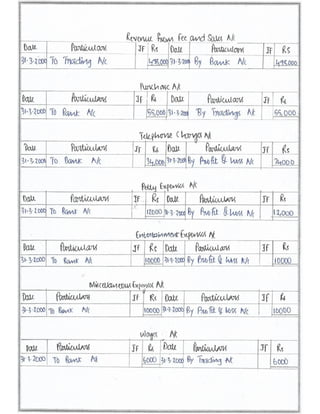 Revenue from Fee and Sales A/c
Date Particulars If Rs Date Particulars If Rs
31-3-2000 To Trading A/c 495,000 31-3-2000 By Bank A/c 495,000
Purchase A/c
Date Particulars If Rs Date Particulars If Rs
31-3-2000 To Bank A/c 55,000 31-3-2000 By Tradings A/c 55,000
Telephone Charges A/c
Date Particulars If Rs Date Particulars If Rs
31-3-2000 To Bank A/c 24,000 31-3-2000 By Profit & Loss A/c 24000
Petty Expenses A/c
Date Particulars If Rs Date Particulars If Rs
31-3-2000 To Bank A/c 12000 31-3-2000 By Profit & Loss A/c 12,000
Entertainment Expenses A/c
Date Particulars If Rs Date Particulars If Rs
31-3-2000 To Bank A/c 10000 31-3-2000 By Profit & Loss A/c 10000
Miscellaneous Expenses A/c
Date Particulars If Rs Date Particulars If Rs
31-3-2000 To Bank A/c 10000 31-3-2000 By Profit & Loss A/c 10000
Wages A/c
Date Particulars If Rs Date Particulars If Rs
31-3-2000 To Bank A/c 6000 31-3-2000 By Trading A/c 6000